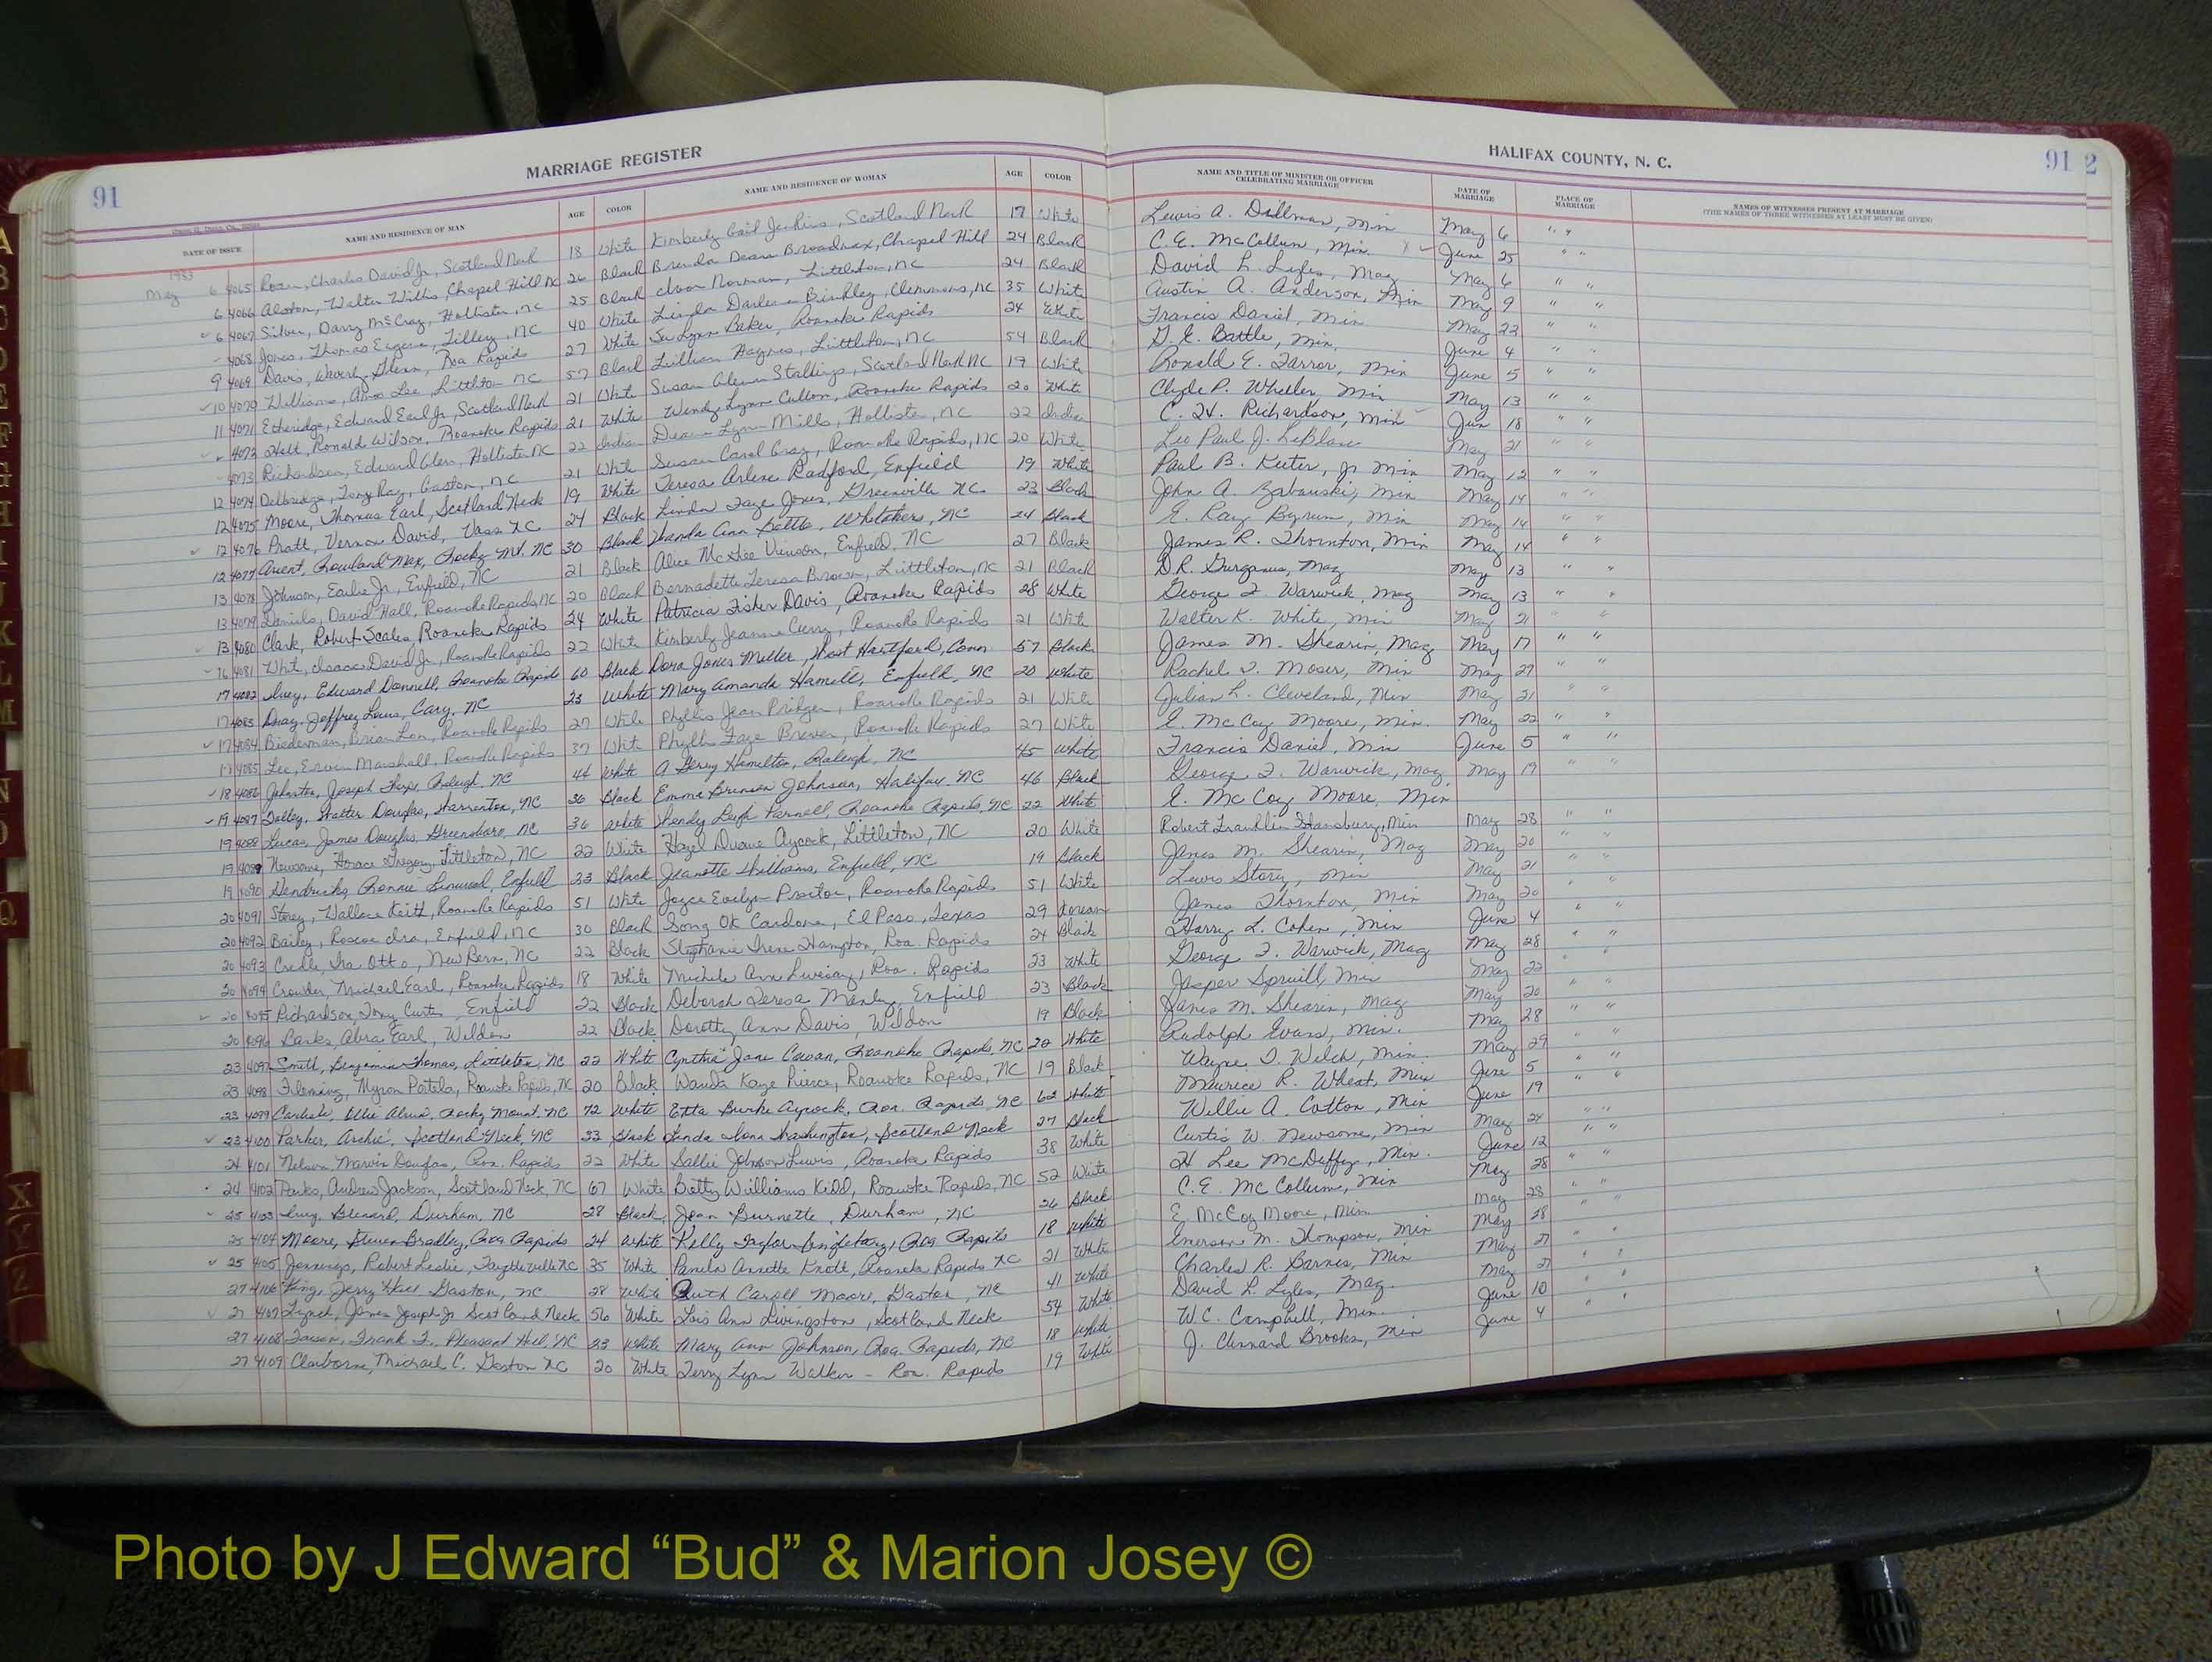 MARRIAGE REGISTER
HALIFAX COUNTY, N. C.
91
91 2
DATE OF ISSUE NAME AND RESIDENCE OF MAN AGE COLOR NAME AND RESIDENCE OF WOMAN AGE COLOR NAME AND TITLE OF MINISTER OR OFFICER CELEBRATING MARRIAGE DATE OF MARRIAGE PLACE OF MARRIAGE NAMES OF WITNESSES PRESENT AT MARRIAGE (THE NAMES OF THREE WITNESSES AT LEAST MUST BE GIVEN)
1983
May 6 4065 Charles David Jr, Scotland Neck 18 White Kimberly Gail Jenkins, Scotland Neck 17 White Lewis A. Min May 6 " "
6 4066 Alston, Walter Willis, Chapel Hill NC 26 Black Brenda Broadnax, Chapel Hill 24 Black C. E. McCollum, Min. June 25 " "
6 4067 Silver, Darry McCray, Hollister, NC 25 Black Norman, Littleton, NC 24 Black David L. Lyles, Mag May 6 " "
4068 Jones, Thomas Eugene, Tillery, NC 40 White Linda Darlene Binkley, Clemmons, NC 35 White Austin A. Anderson, Min May 9 " "
9 4069 Davis, Waverly Glenn, Roa Rapids 27 White Lynn Baker, Roanoke Rapids 24 White Francis Daniel, Min May 22 " "
10 4070 Williams, Lee, Littleton NC 57 Black Lillian Haynes, Littleton, NC 54 Black G. E. Battle, Min. June 4 " "
11 4071 Etheridge, Edward Earl Jr, Scotland Neck 21 White Susan Stallings, Scotland Neck NC 19 White Ronald E. Farror, Min June 5 " "
4072 Holt, Ronald Wilson, Roanoke Rapids 21 White Wendy Lynn Cullom, Roanoke Rapids 20 White Clyde P. Wheeler, Min May 13 " "
4073 Richardson, Edward Glen, Hollister NC 22 Indian Lynn Mills, Hollister, NC 22 Indian C. H. Richardson, Min Jun 18 " "
12 4074 Delbridge, Tony Ray, Gaston, NC 21 White Susan Carol Gray, Roanoke Rapids, NC 20 White Leo Paul J. LeBlanc May 21 " "
12 4075 Moore, Thomas Earl, Scotland Neck 19 White Teresa Arlene Radford, Enfield 19 White Paul B. Keeter, Jr Min May 12 " "
12 4076 Pratt, Vernon David, Vass NC 24 Black Linda Faye Jones, Greenville NC 23 Black John A. Min May 14 " "
12 4077 Arent, Rowland Max, Rocky Mt. NC 30 Black Wanda Ann Battle, Whitakers, NC 24 Black E. Ray Byrum, Min May 14 " "
13 4078 Johnson, Earlie Jr, Enfield, NC 21 Black Alice McKee Vinson, Enfield, NC 27 Black James R. Thornton, Min May 14 " "
13 4079 Daniels, David Hall, Roanoke Rapids, NC 20 Black Bernadette Teresa Brown, Littleton, NC 21 Black D.R. Gurganus, Mag May 13 " "
13 4080 Clark, Robert Scales, Roanoke Rapids 24 White Patricia Fisher Davis, Roanoke Rapids 28 White George T. Warwick, Mag May 13 " "
16 4081 White, Isaac David Jr, Roanoke Rapids 22 White Kimberly Jeanne Curry, Roanoke Rapids 21 White Walter K. White, Min May 21 " "
17 4082 Ivey, Edward Donnell, Roanoke Rapids 60 Black Dora Jones Miller, West Hartford, Conn 57 Black James M. Shearin, Mag May 17 " "
17 4083 Gray, Jeffrey Louis, Cary, NC 23 White Mary Amanda Hamill, Enfield, NC 20 White Rachel T. Moser, Min May 29 " "
17 4084 Biederman, Brian Lon, Roanoke Rapids 27 White Phyllis Jean Pridgen, Roanoke Rapids 21 White Julian L. Cleveland, Min May 21 " "
17 4085 Lee, Ervin Marshall, Roanoke Rapids 37 White Phyllis Faye Brewer, Roanoke Rapids 27 White E. McCoy Moore, Min. May 22 " "
18 4086 Johnston, Joseph Thorpe, Raleigh, NC 44 White A Hamilton, Raleigh, NC 45 White Francis Daniel, Min June 5 " "
19 4087 Talley, Walter Douglas, Warrenton, NC 36 Black Emma Brinson Johnson, Halifax, NC 46 Black George T. Warwick, Mag May 19 " "
19 4088 Lucas, James Douglas, Greensboro, NC 36 White Wendy Leigh Parnell, Roanoke Rapids, NC 22 White E. McCoy Moore, Min
19 4089 Newsome, Horace Gregory, Littleton, NC 22 White Hazel Duane Aycock, Littleton, NC 20 White Robert Franklin Hansbury, Min May 28 " "
19 4090 Hendricks, Ronnie Linwood, Enfield 23 Black Jeanette Williams, Enfield, NC 19 Black James M. Shearin, Mag May 20 " "
20 4091 Storey, Wallace Keith, Roanoke Rapids 51 White Joyce Evelyn Proctor, Roanoke Rapids 51 White Lewis Story, Min May 21 " "
20 4092 Bailey, Roscoe Ira, Enfield, NC 30 Black Song OK Cardona, El Paso, Texas 29 Korean James Thornton, Min May 20 " "
20 4093 Credle, Ira Otto, New Bern, NC 22 Black Stephanie Irene Hampton, Roa. Rapids 24 Black Harry L. Cohen, Min June 4 " "
20 4094 Crowder, Michael Earl, Roanoke Rapids 18 White Michele Ann Livesay, Roa. Rapids 23 White George T. Warwick, Mag May 28 " "
20 4095 Richardson, Tony Curtis, Enfield 22 Black Deborah Teresa Manley, Enfield 23 Black Jasper Spruill, Min May 22 " "
20 4096 Parks, Abra Earl, Weldon 22 Black Dorothy Ann Davis, Weldon 19 Black James M. Shearin, Mag May 20 " "
23 4097 Smith, Benjamin Thomas, Littleton, NC 22 White Cynthia Jane Cowan, Roanoke Rapids, NC 20 White Rudolph Evans, Min. May 28 " "
23 4098 Fleming, Myron Portelo, Roanoke Rapids, NC 20 Black Wanda Kaye Pierce, Roanoke Rapids, NC 19 Black Wayne T. Welch, Min. May 29 " "
23 4099 Carlisle, Ollie Alvin, Rocky Mount, NC 72 White Etta Burke Aycock, Roa. Rapids, NC 62 White Maurice R. Wheat, Min June 5 " "
23 4100 Parker, Archie, Scotland Neck, NC 33 Black Linda Washington, Scotland Neck 27 Black Willie A. Cotton, Min June 19 " "
24 4101 Nelson, Marvin Douglas, Roa. Rapids 22 White Sallie Johnson Lewis, Roanoke Rapids 38 White Curtis W. Newsome, Min May 24 " "
24 4102 Parks, Andrew Jackson, Scotland Neck, NC 67 White Betty Williams Kidd, Roanoke Rapids, NC 52 White H Lee McDuffey, Min. June 12 " "
25 4103 Ivey, Durham, NC 28 Black Jean Burnette, Durham, NC 26 Black C.E. McCollum, Min May 28 " "
25 4104 Moore, Steven Bradley, Roa Rapids 24 White Kelly Taylor Roa Rapids 18 White E McCoy Moore, Min May 28 " "
25 4105 Jennings, Robert Leslie, Fayetteville NC 35 White Pamela Annette Knott, Roanoke Rapids NC 21 White Emerson M. Thompson, Min May 28 " "
27 4106 King, Jerry Gaston, NC 28 White Ruth Caroll Moore, Gaston, NC 41 White Charles R. Barnes, Min May 27 " "
27 4107 Lynch, James Joseph Jr Scotland Neck 56 White Lois Ann Livingston, Scotland Neck 54 White David L. Lyles, Mag. May 27 " "
27 4108 Frank T., Pleasant Hill, NC 23 White Mary Ann Johnson, Roa. Rapids, NC 18 White W.C. Campbell, Min. June 10 " "
27 4109 Claiborne, Michael C. Gaston NC 20 White Terry Lynn Walker - Roa. Rapids 19 White J. Clennard Brooks, Min June 4 " "
Photo by J Edward “Bud” & Marion Josey ©